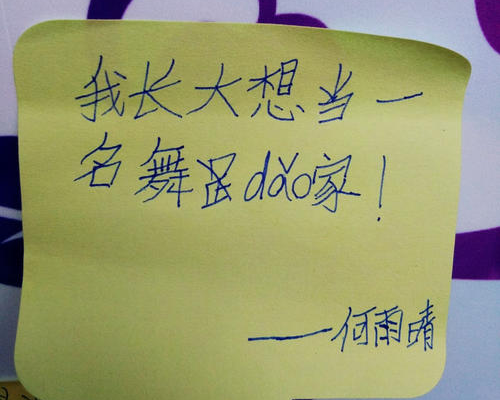 我长大想当一
名舞dǎo家！
——何雨晴